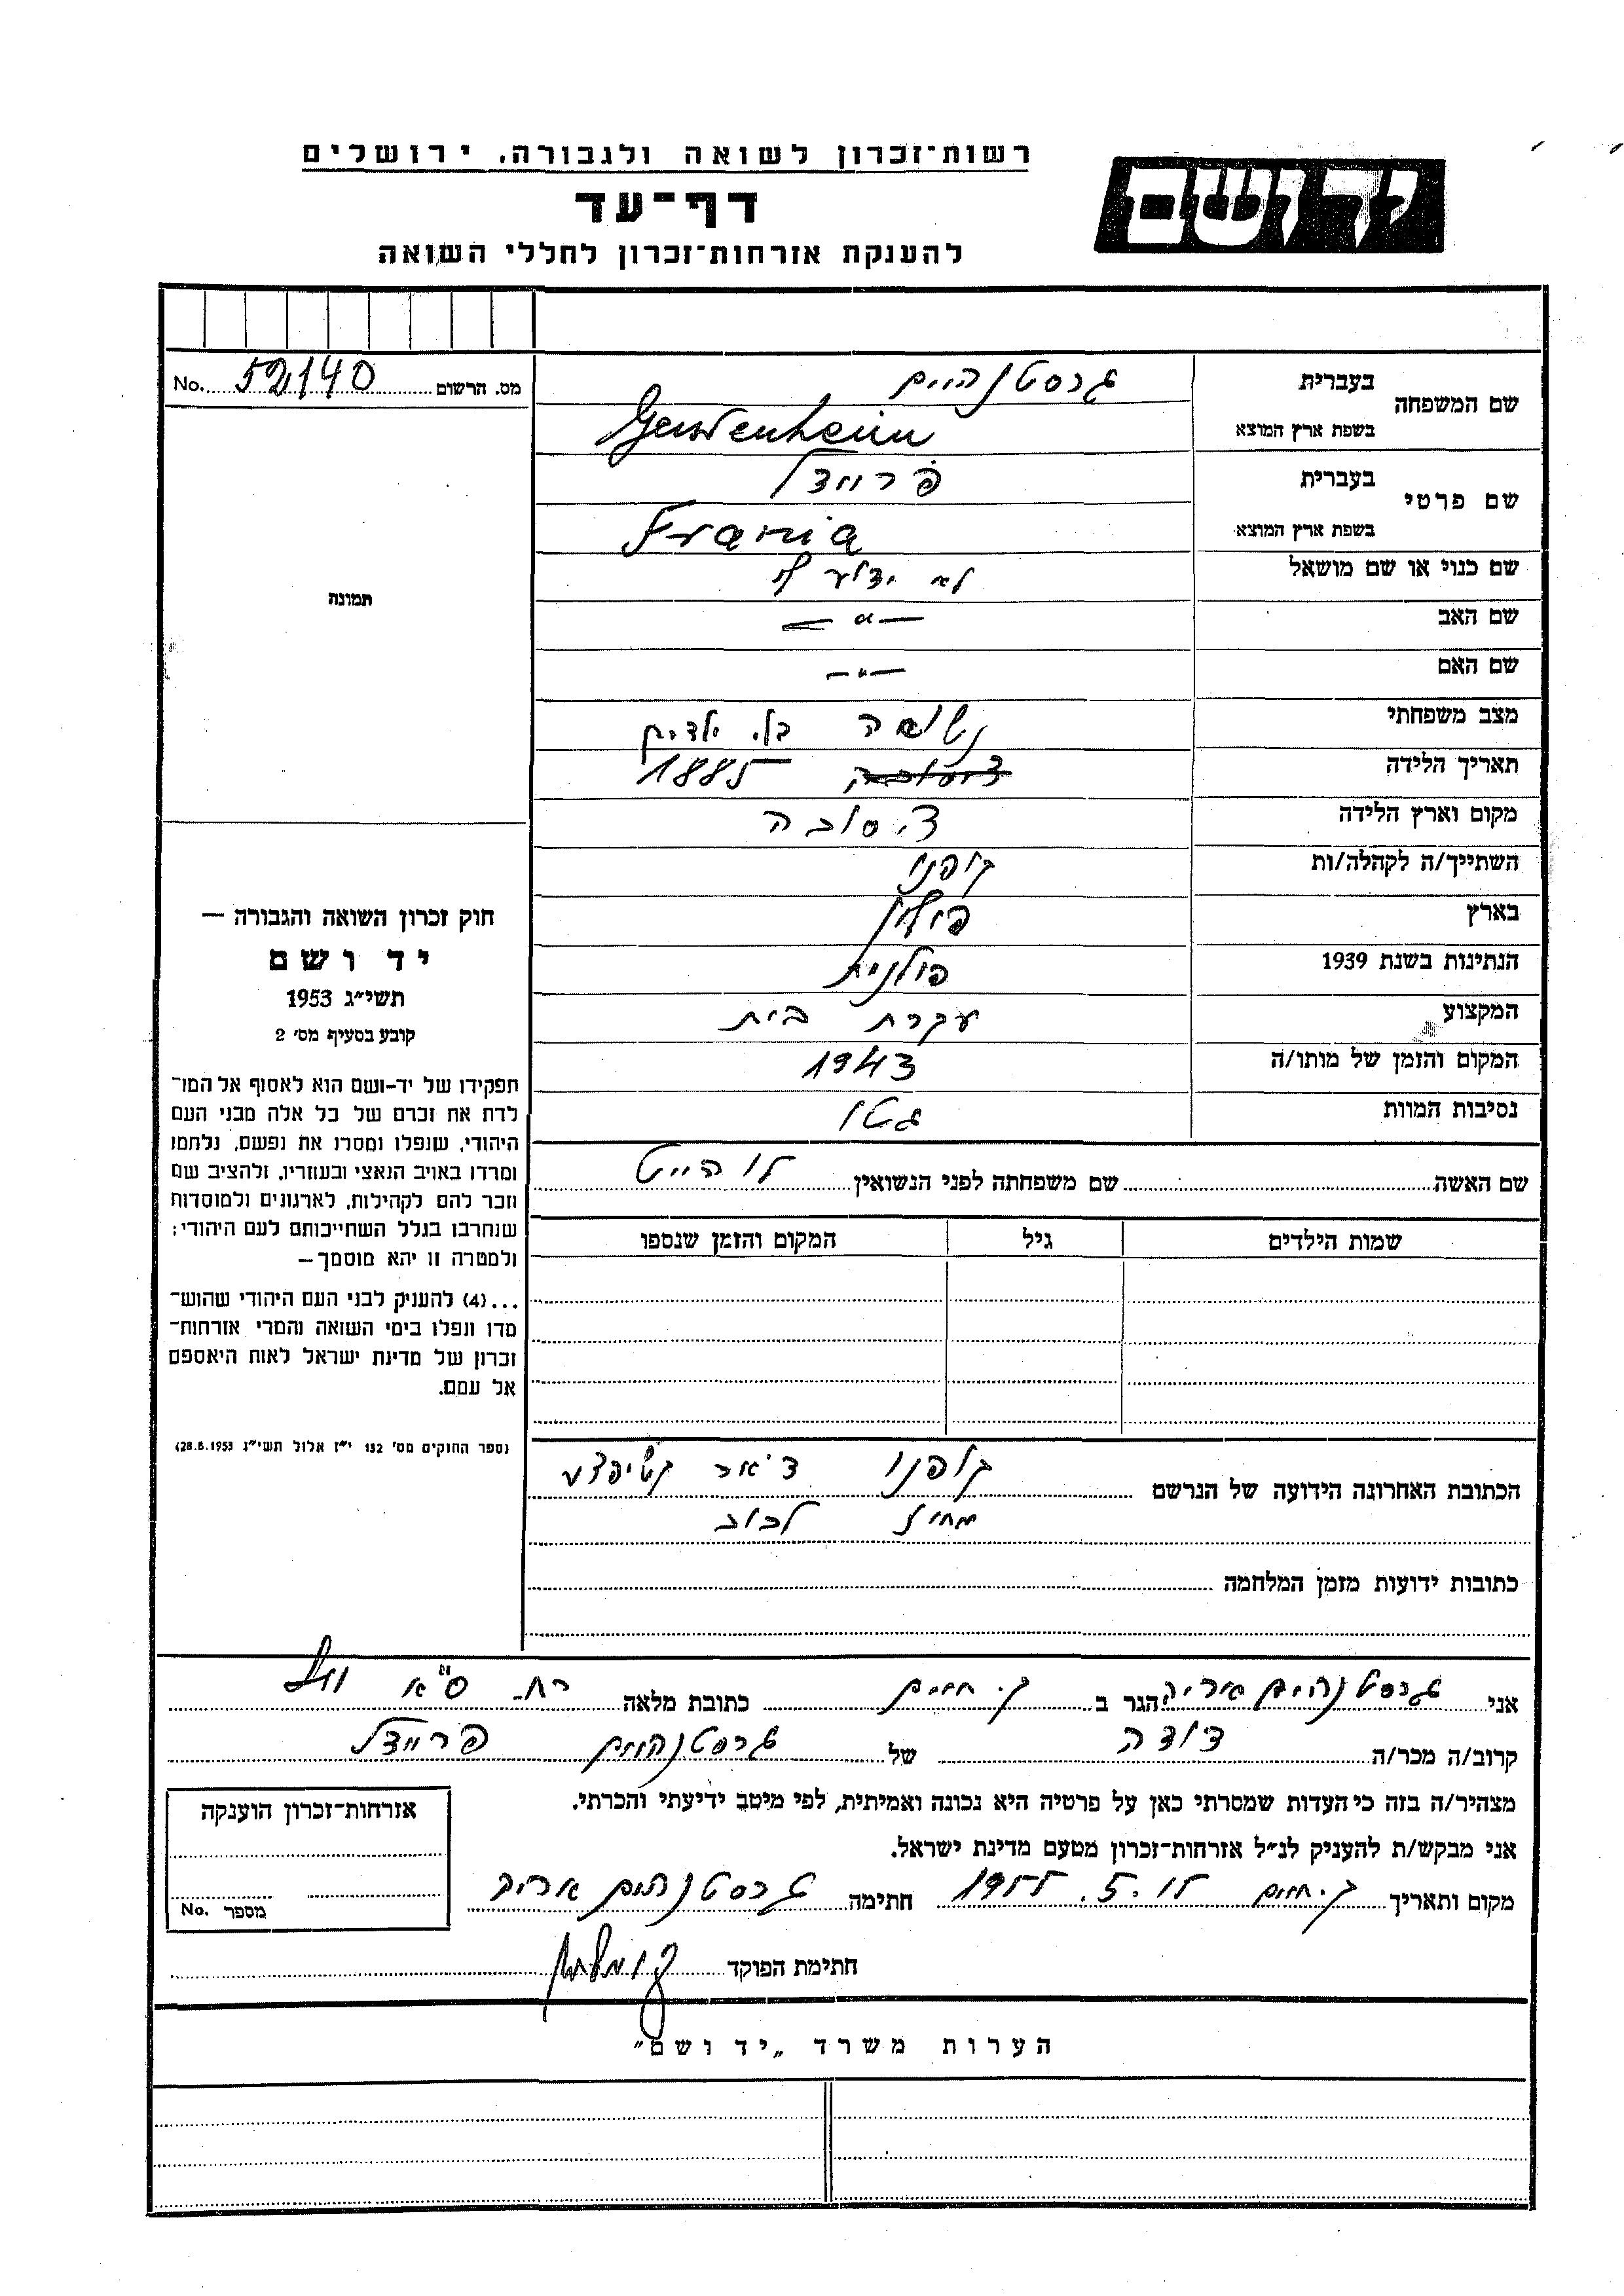 רשות־זכרון לשואה ולגבורה, ירושלים
ידושם
דף־עד
להענקת אזרחות־זכרון לחללי השואה
מס. הרשום 52140 No.
שם המשפחה
בעברית גרסטנהיים
בשפת ארץ המוצא Gerstenheim
שם פרטי
בעברית פריידל
בשפת ארץ המוצא Frania
שם כנוי או שם מושאל לא ידוע לי
שם האב — " —
שם האם — " —
מצב משפחתי נשואה בלי ילדים
תאריך הלידה 1885
מקום וארץ הלידה
השתייך/ה לקהלה/ות
בארץ פולין
הנתינות בשנת 1939 פולנית
המקצוע עקרת בית
המקום והזמן של מותו/ה 1943
נסיבות המוות גטו
תמונה
חוק זכרון השואה והגבורה —
יד ושם
תשי״ג 1953
קובע בסעיף מס׳ 2
תפקידו של יד-ושם הוא לאסוף אל המו־
לדת את זכרם של כל אלה מבני העם
היהודי, שנפלו ומסרו את נפשם, נלחמו
ומרדו באויב הנאצי ובעוזריו, ולהציב שם
וזכר להם לקהילות, לארגונים ולמוסדות
שנחרבו בגלל השתייכותם לעם היהודי;
ולמטרה זו יהא מוסמך—
...(4) להעניק לבני העם היהודי שהוש־
מדו ונפלו בימי השואה והמרי אזרחות־
זכרון של מדינת ישראל לאות היאספם
אל עמם.
(ספר החוקים מס׳ 132 י״ז אלול תשי״ג 28.8.1953)
שם האשה שם משפחתה לפני הנשואין
שמות הילדים גיל המקום והזמן שנספו
הכתובת האחרונה הידועה של הנרשם
מחוז לבוב
כתובות ידועות מזמן המלחמה
אני גרסטנהיים אריה הגר ב ק. חיים כתובת מלאה רח.
קרוב/ה מכר/ה דודה של גרסטנהיים פריידל
מצהיר/ה בזה כי העדות שמסרתי כאן על פרטיה היא נכונה ואמיתית, לפי מיטב ידיעתי והכרתי.
אני מבקש/ת להעניק לנ״ל אזרחות־זכרון מטעם מדינת ישראל.
מקום ותאריך ק. חיים 5. 1955 חתימה גרסטנהיים אריה
חתימת הפוקד
אזרחות־זכרון הוענקה
מספר No.
הערות משרד „יד ושם״